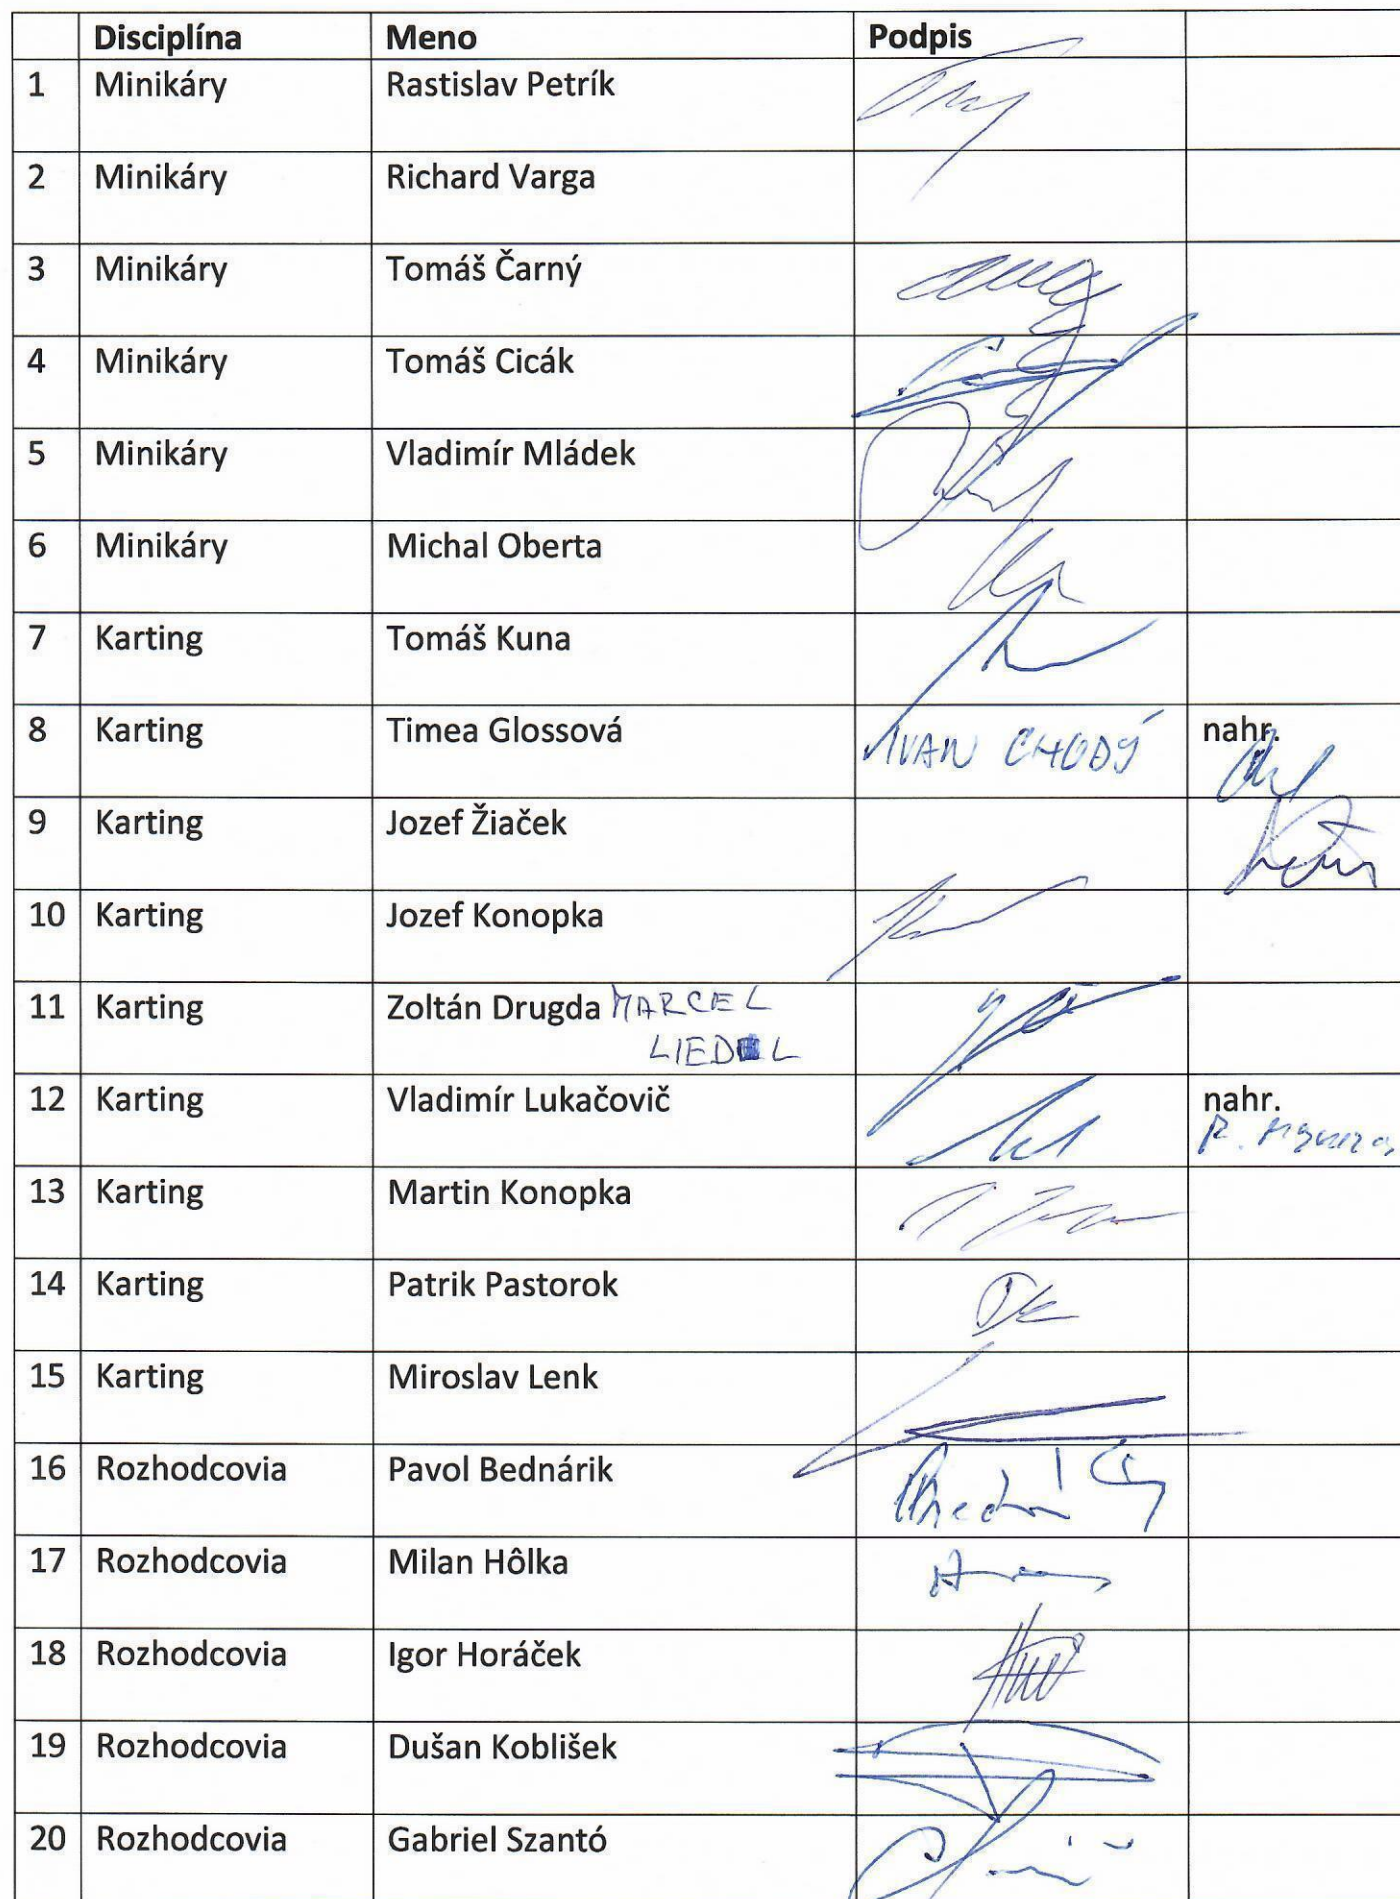 Disciplína Meno Podpis
1 Minikáry Rastislav Petrík
2 Minikáry Richard Varga
3 Minikáry Tomáš Čarný
4 Minikáry Tomáš Cicák
5 Minikáry Vladimír Mládek
6 Minikáry Michal Oberta
7 Karting Tomáš Kuna
8 Karting Timea Glossová IVAN CHODÝ nahr.
9 Karting Jozef Žiaček
10 Karting Jozef Konopka
11 Karting Zoltán Drugda MARCEL
LIEDL
12 Karting Vladimír Lukačovič nahr.
13 Karting Martin Konopka
14 Karting Patrik Pastorok
15 Karting Miroslav Lenk
16 Rozhodcovia Pavol Bednárik
17 Rozhodcovia Milan Hôlka
18 Rozhodcovia Igor Horáček
19 Rozhodcovia Dušan Koblišek
20 Rozhodcovia Gabriel Szantó